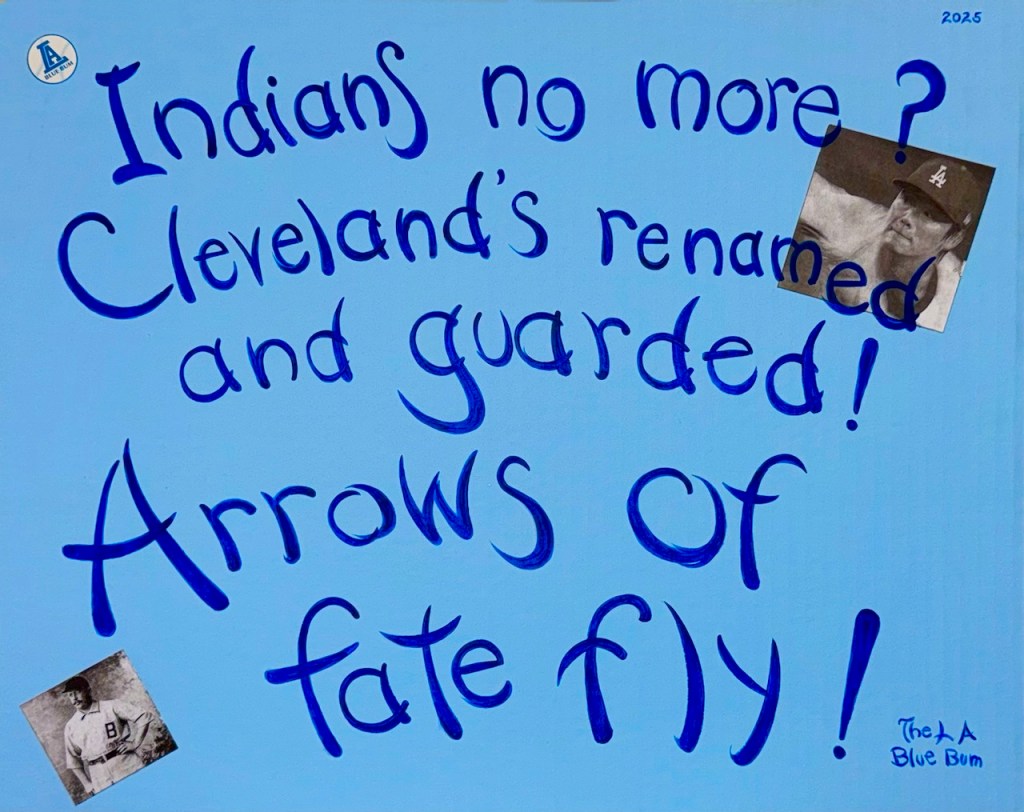 2025
LA
BLUE BUM
Indians no more?
Cleveland's renamed
and guarded!
Arrows of
fate fly!
LA
B
The LA
Blue Bum